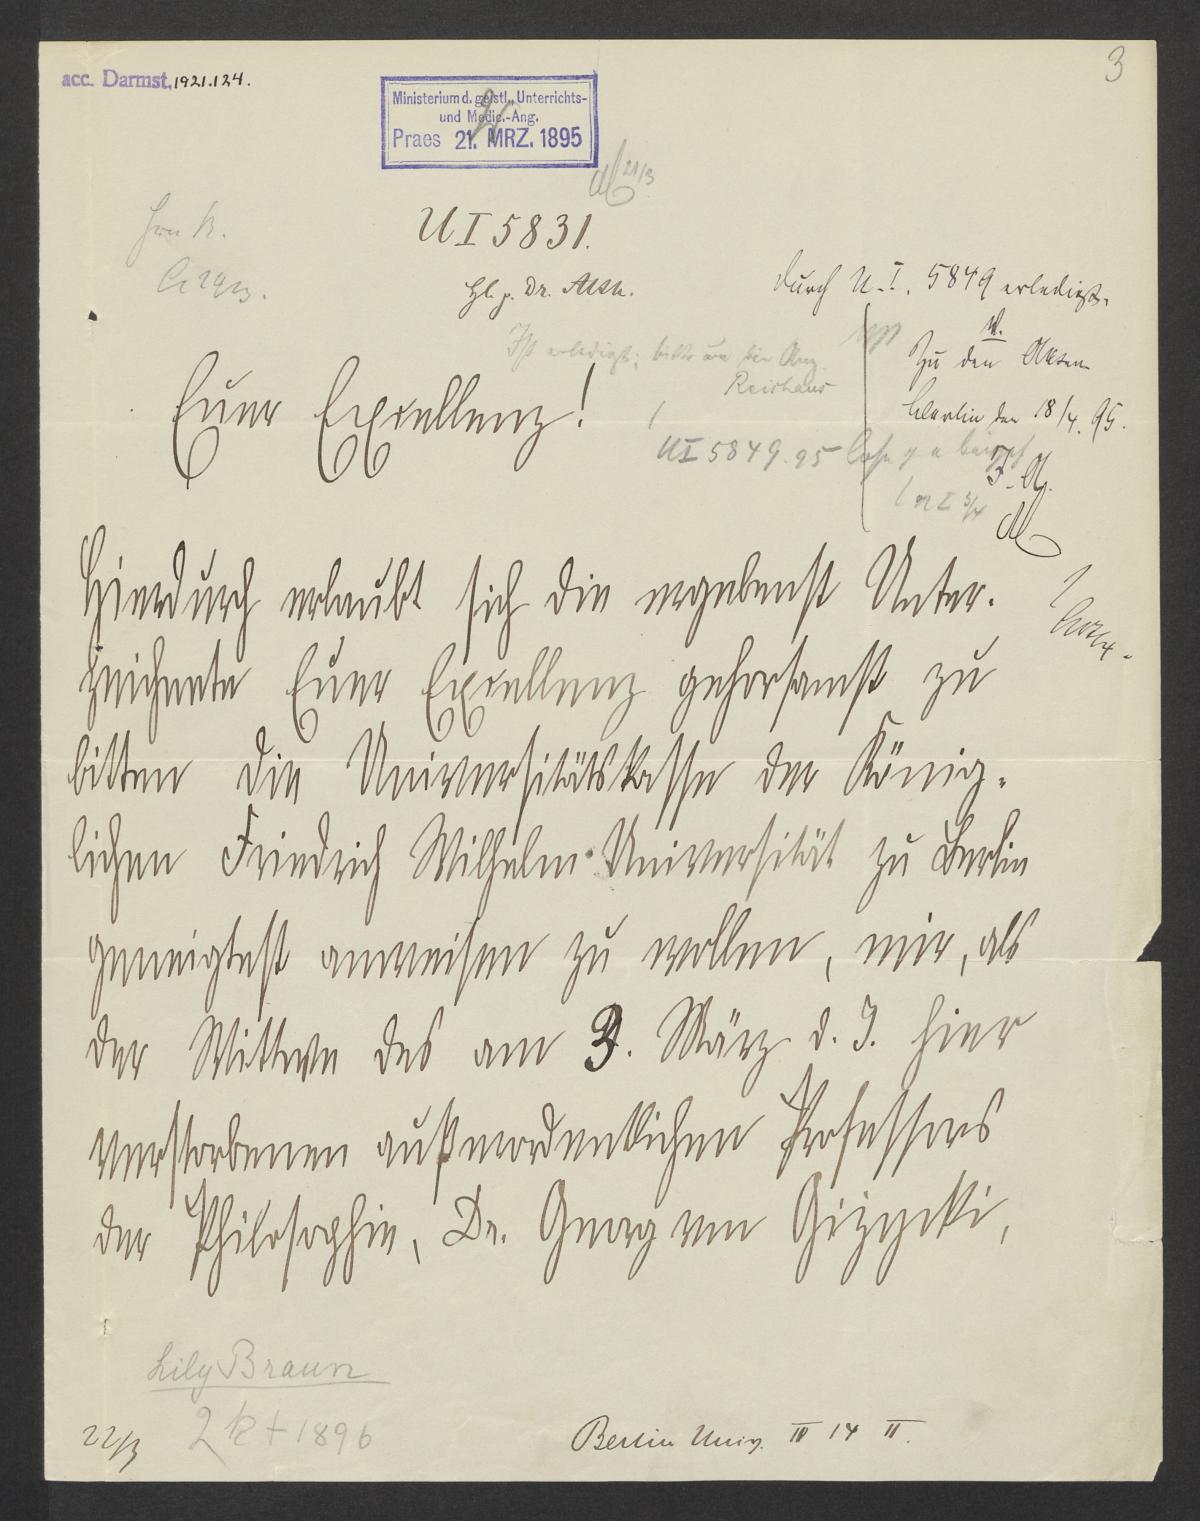 acc. Darmst. 1921.124.
3
Ministerium d. geistl., Unterrichts-
und Medic.-Ang.
Praes 21. MRZ. 1895
21/3
U I 5831.
durch U. I. 5849 erledigt.
Zu den Akten
Berlin den 18/4. 95.
Ist erledigt;
U I 5849. 95
Euer Excellenz!
Hierdurch erlaubt sich die ergebenst Unter-
zeichnete Euer Excellenz gehorsamst zu
bitten die Universitätskasse der König-
lichen Friedrich Wilhelm-Universität zu Berlin
geneigtest anweisen zu wollen, mir, als
der Wittwe des am 3. März d. J. hier
verstorbenen außerordentlichen Professors
der Philosophie, Dr. Georg von Gizycki,
Lily Braun
22/3
2 k + 1896
Berlin Univ. IV 14 II.